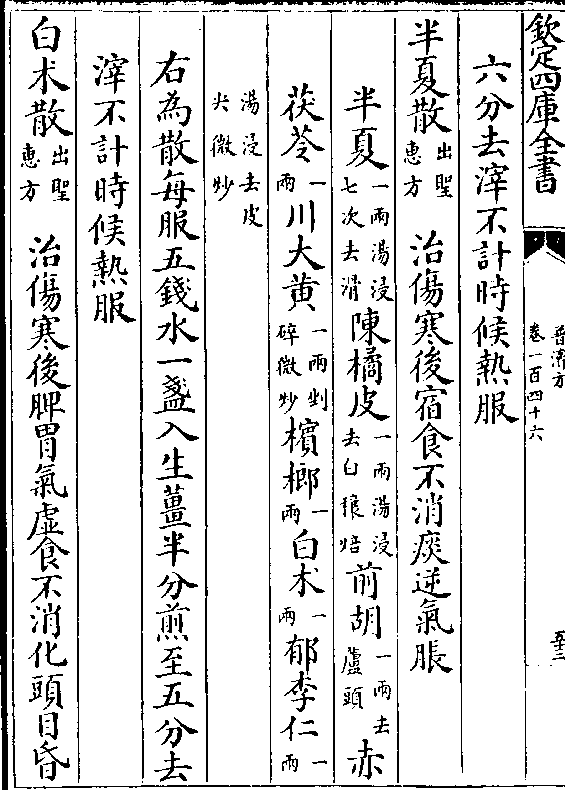 欽定四庫全書
普濟方
卷一百四十六
六分去滓不計時候熱服
半夏散出聖惠方 治傷寒後宿食不消痰逆氣脹
半夏一兩湯浸七次去滑 陳橘皮一兩湯浸去白穰焙 前胡一兩去蘆頭 赤
茯苓一兩 川大黄一兩剉碎微炒 檳榔一兩 白术一兩 郁李仁一兩
湯浸去皮尖微炒
右為散每服五錢水一盞入生薑半分煎至五分去
滓不計時候熱服
白术散出聖惠方 治傷寒後脾胃氣虚食不消化頭目昏